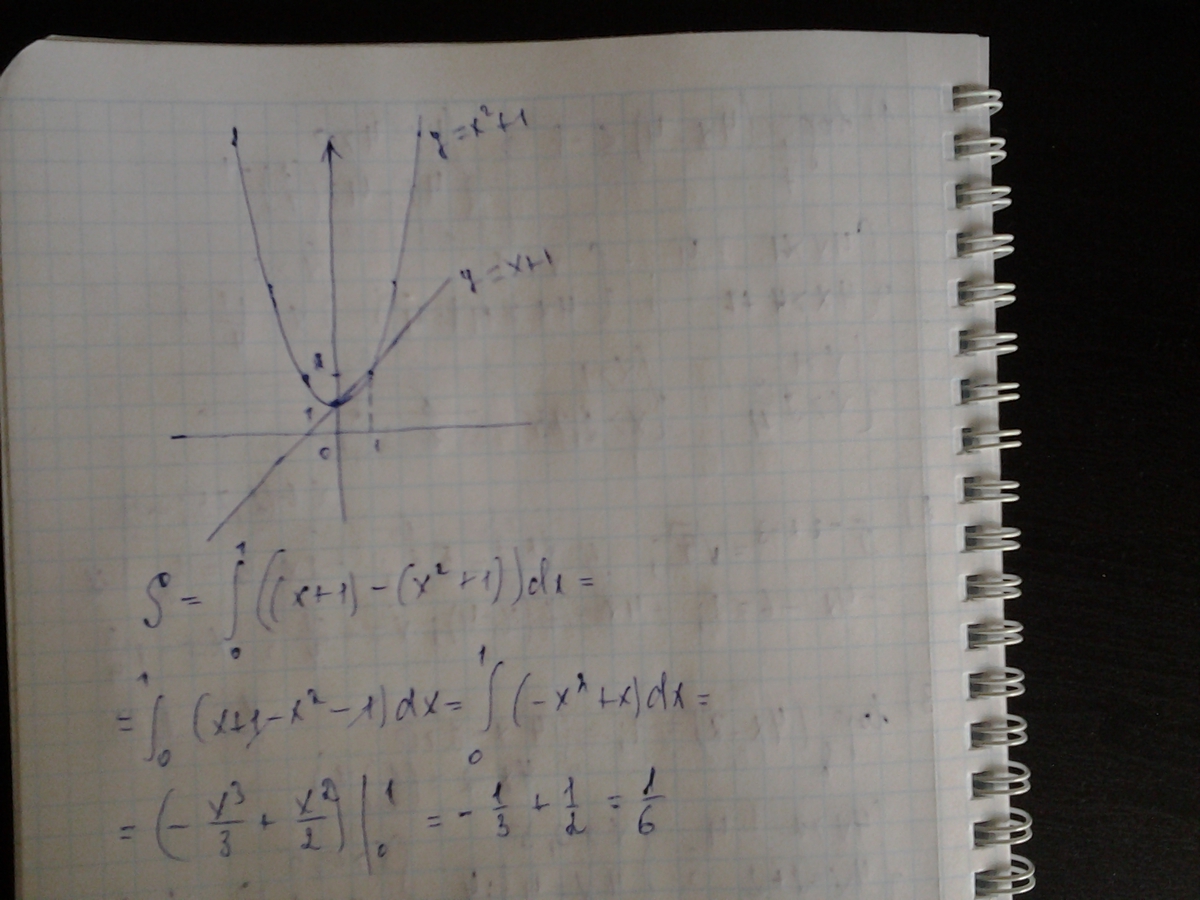 y = x² + 1
y = x + 1
2
1
0 1
S = ∫₀¹ ((x + 1) − (x² + 1)) dx =
= ∫₀¹ (x + 1 − x² − 1) dx = ∫₀¹ (−x² + x) dx =
= (− x³/3 + x²/2) |₀¹ = − 1/3 + 1/2 = 1/6